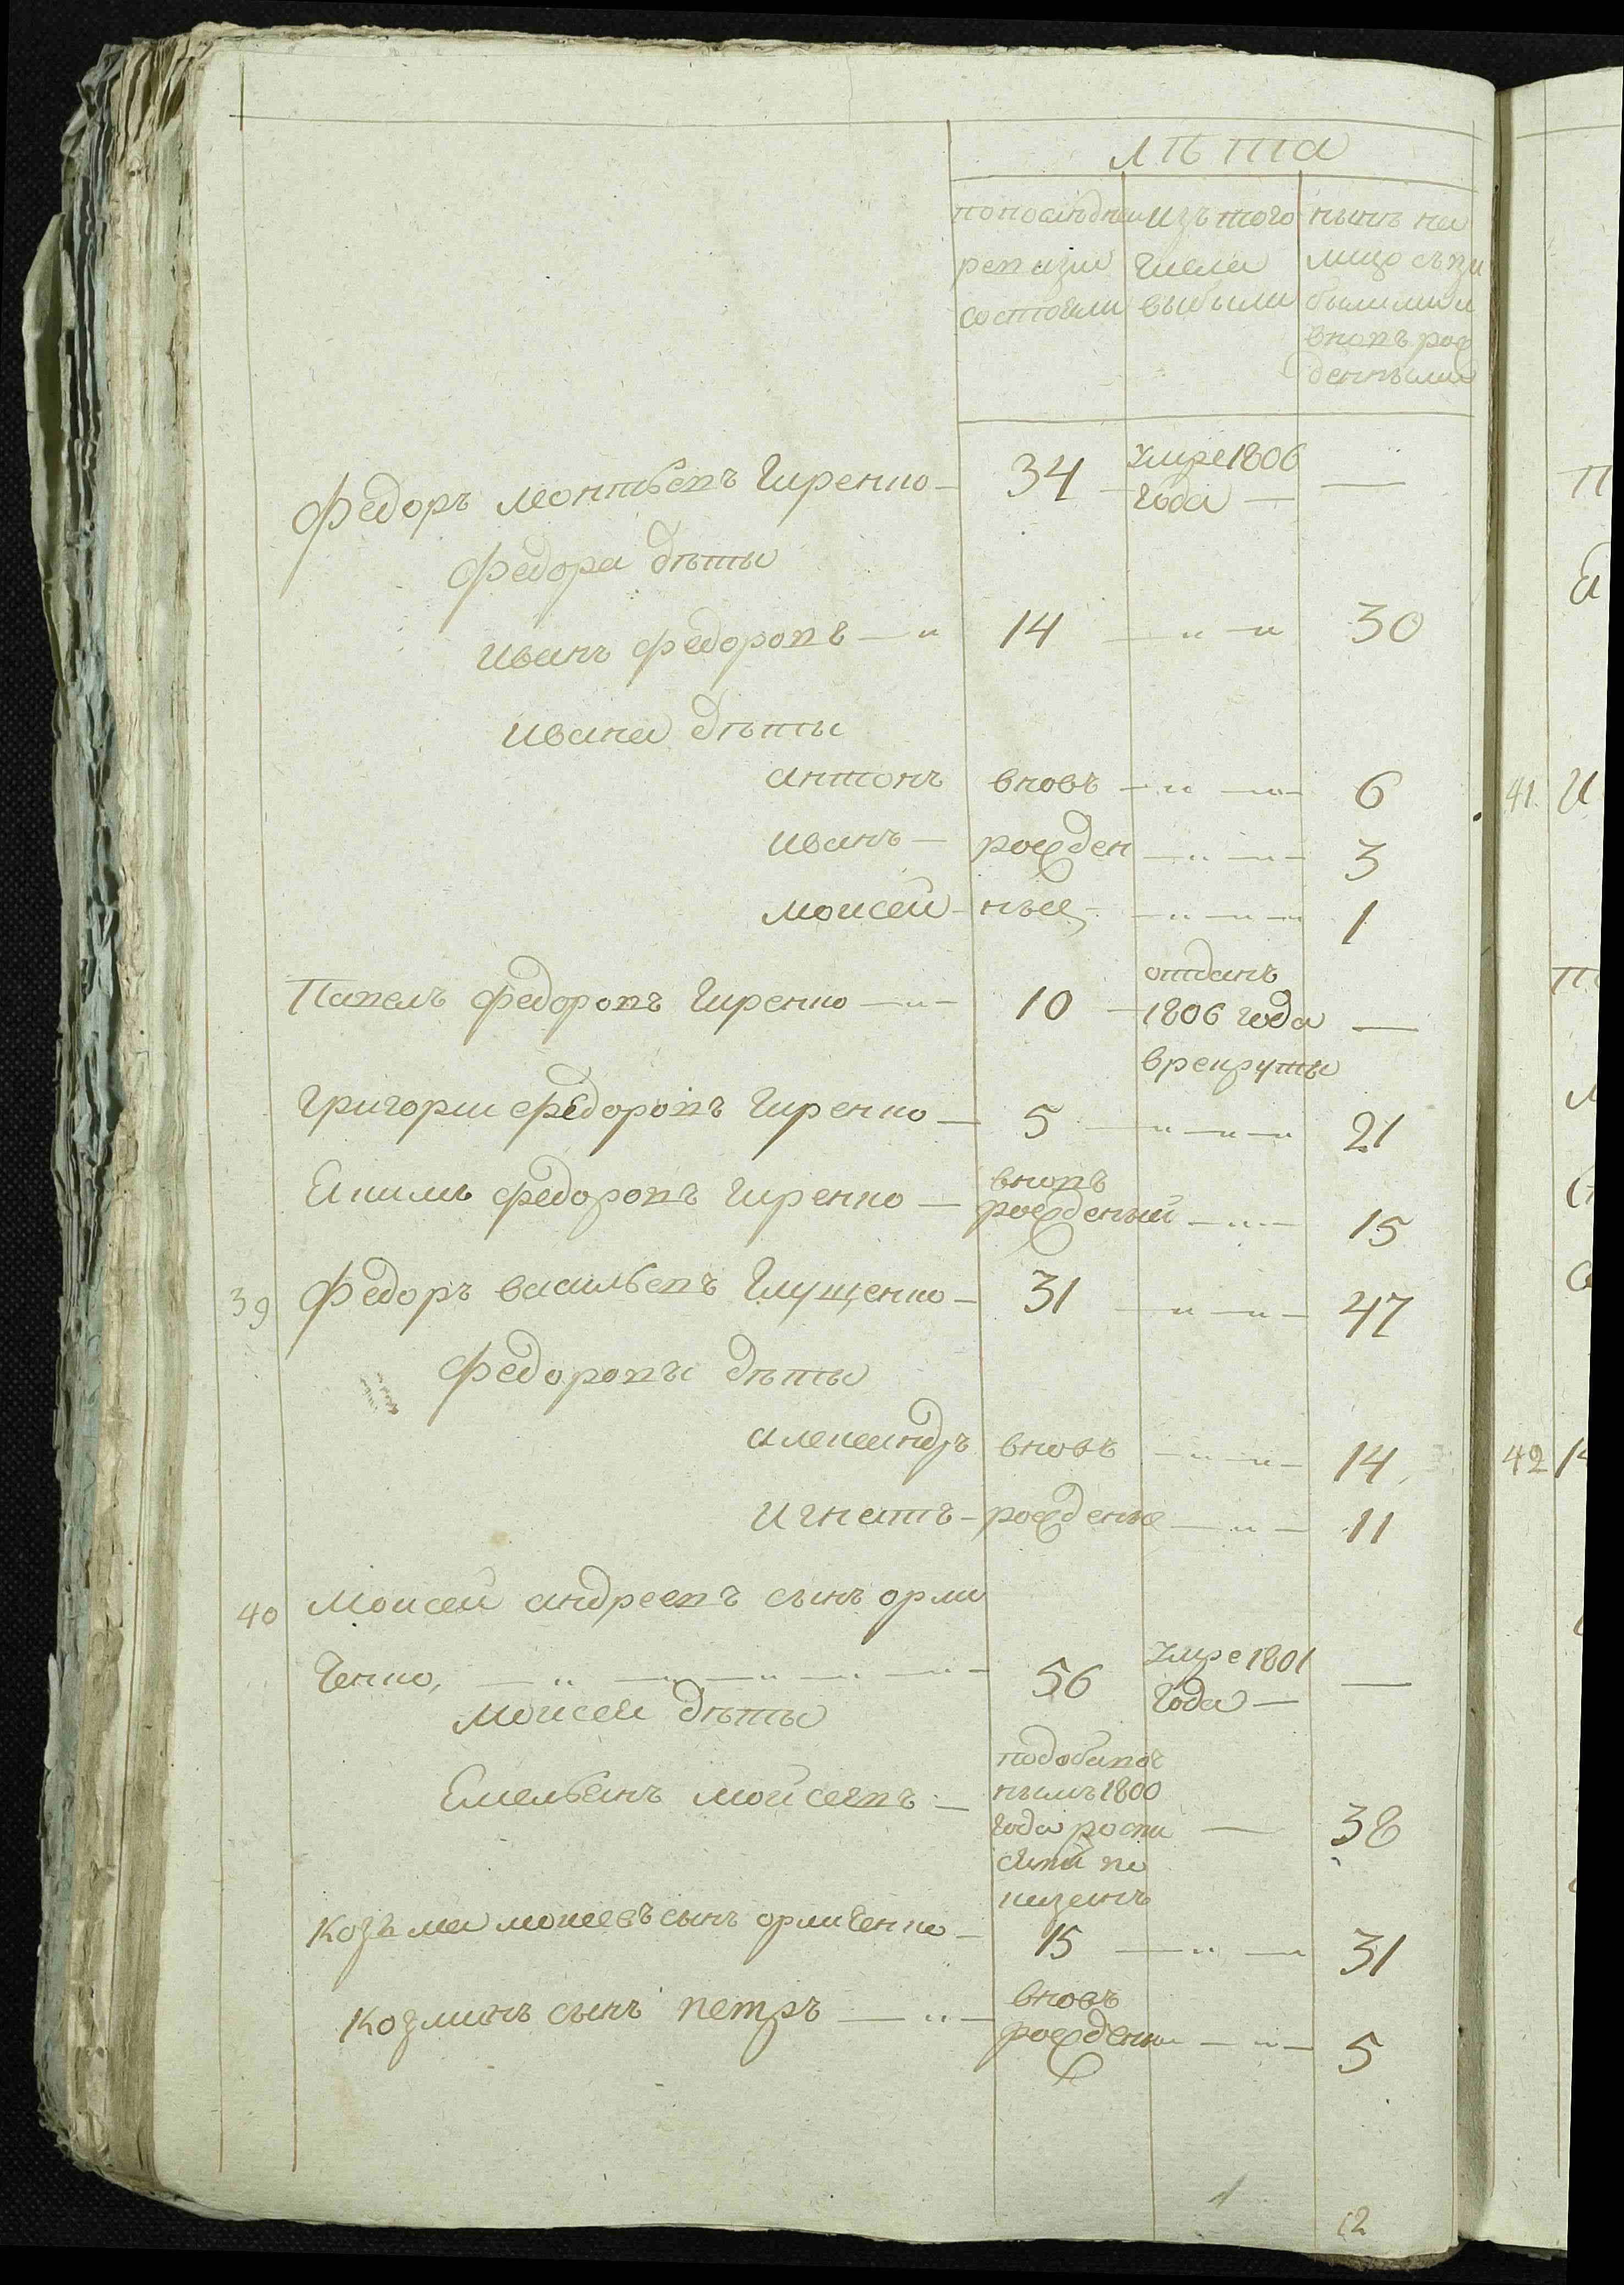 лѣта
попоследнеи изъ того нынѣ на
ревизии числа лицо съ при
состояли выбыли былыми и
вновь рож
денными
Федоръ леонтьевъ Гиренко — 34 — умре 1806 —
года —
Федора дѣти
Иванъ федоровъ — 14 — 30
Ивана дѣти
антонъ вновь — 6
иванъ — рожден — 3
моисей — ные — 1
отданъ
Павелъ федоровъ Гиренко — 10 — 1806 года —
врекруты
Григории федоровъ Гиренко — 5 — 21
вновь
Екимъ федоровъ Гиренко — рожденный — 15
39 Федоръ васильевъ Глущенко — 31 — 47
Федоровы дѣти
александръ вновь — 14
Игнатъ — рожденые — 11
40 Моисей андреевъ сынъ орли
ченко, — 56 умре 1801 —
года —
Моисея дѣти
Емельянъ мойсеевъ —
нымъ 1800
года — 38
казанъ
Козьма моисеевъ сынъ орличенко — 15 — 31
вновь
Козминъ сынъ петръ — рожденны — 5
1 12
41
42